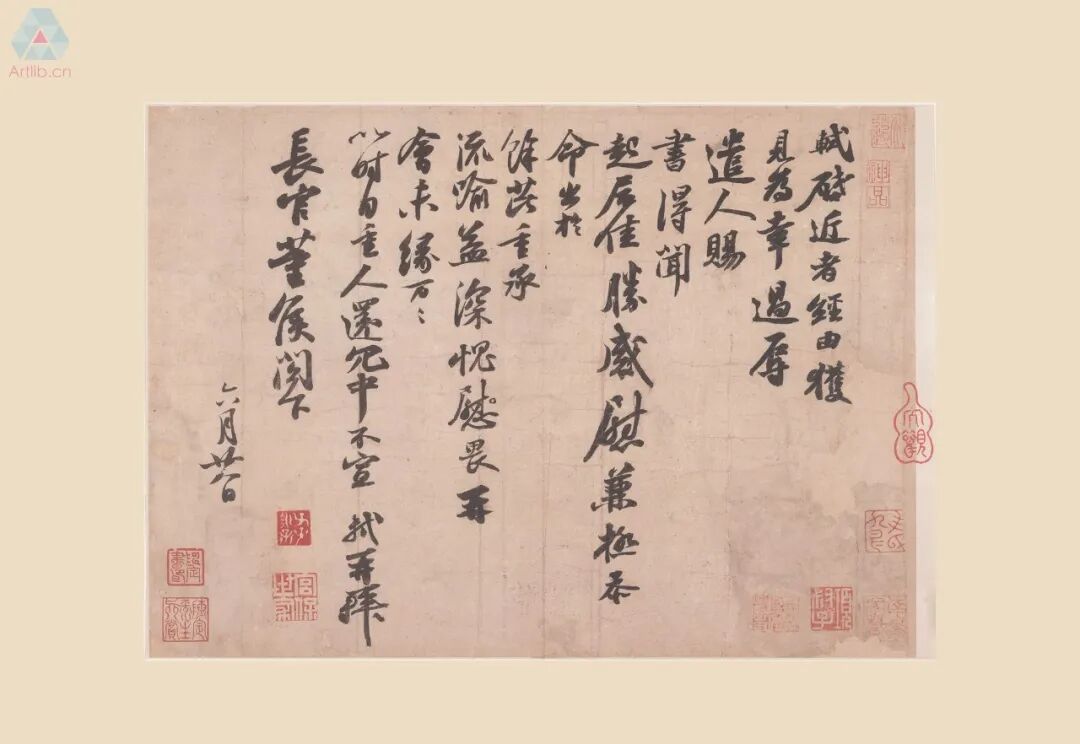 Artlib.cn
軾啓近者經由獲
見爲幸過辱
遣人賜
書得聞
起居佳勝感慰兼極忝
命出於
餘芘重承
流喻益深愧慰畏再
會未緣万〻
以时自重人還冗中不宣 軾再拜
長官董侯閣下
六月廿八日
神品
宮保世家